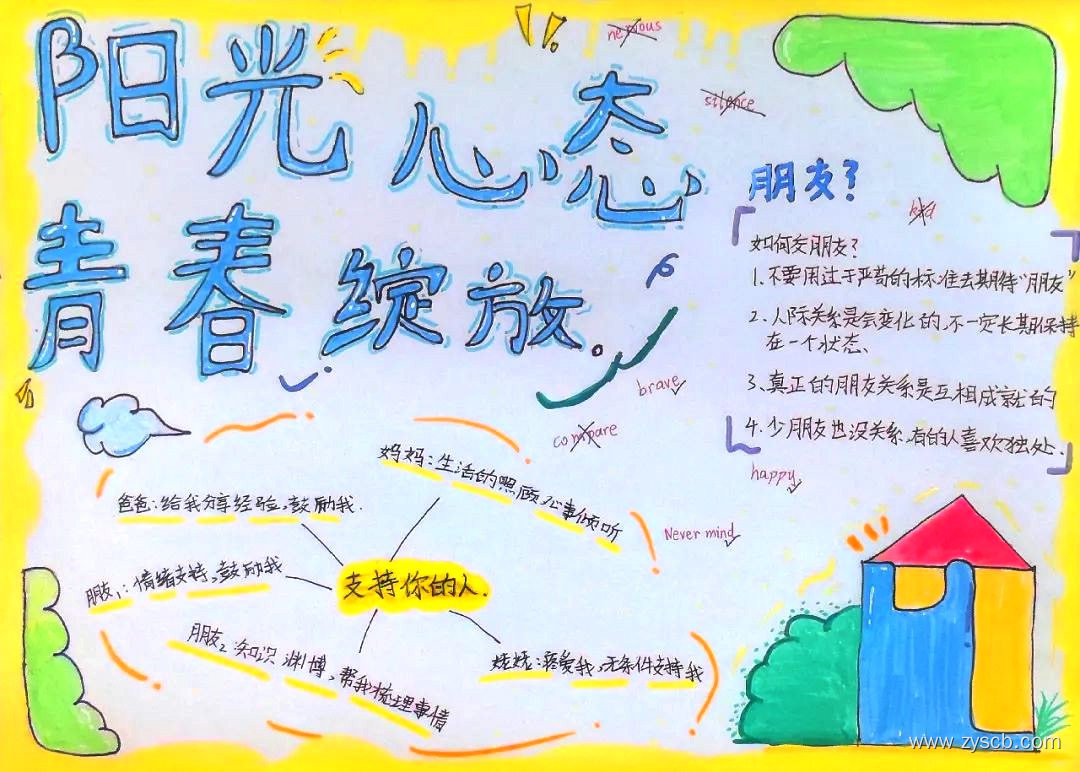 阳光心态
青春绽放。
nervous
silence
朋友?
kid
如何交朋友?
1.不要用过于严苛的标准去期待"朋友"
2.人际关系是会变化的,不一定长期保持
在一个状态、
3、真正的朋友关系是互相成就的
4.少朋友也没关系,有的人喜欢独处.
brave
compare
happy
Never mind
妈妈:生活的照顾,心事倾听
爸爸:给我分享经验,鼓励我.
朋友1:情绪支持,鼓励我
支持你的人.
朋友2:知识渊博,帮我梳理事情
姥姥:疼爱我,无条件支持我
www.zyscb.com